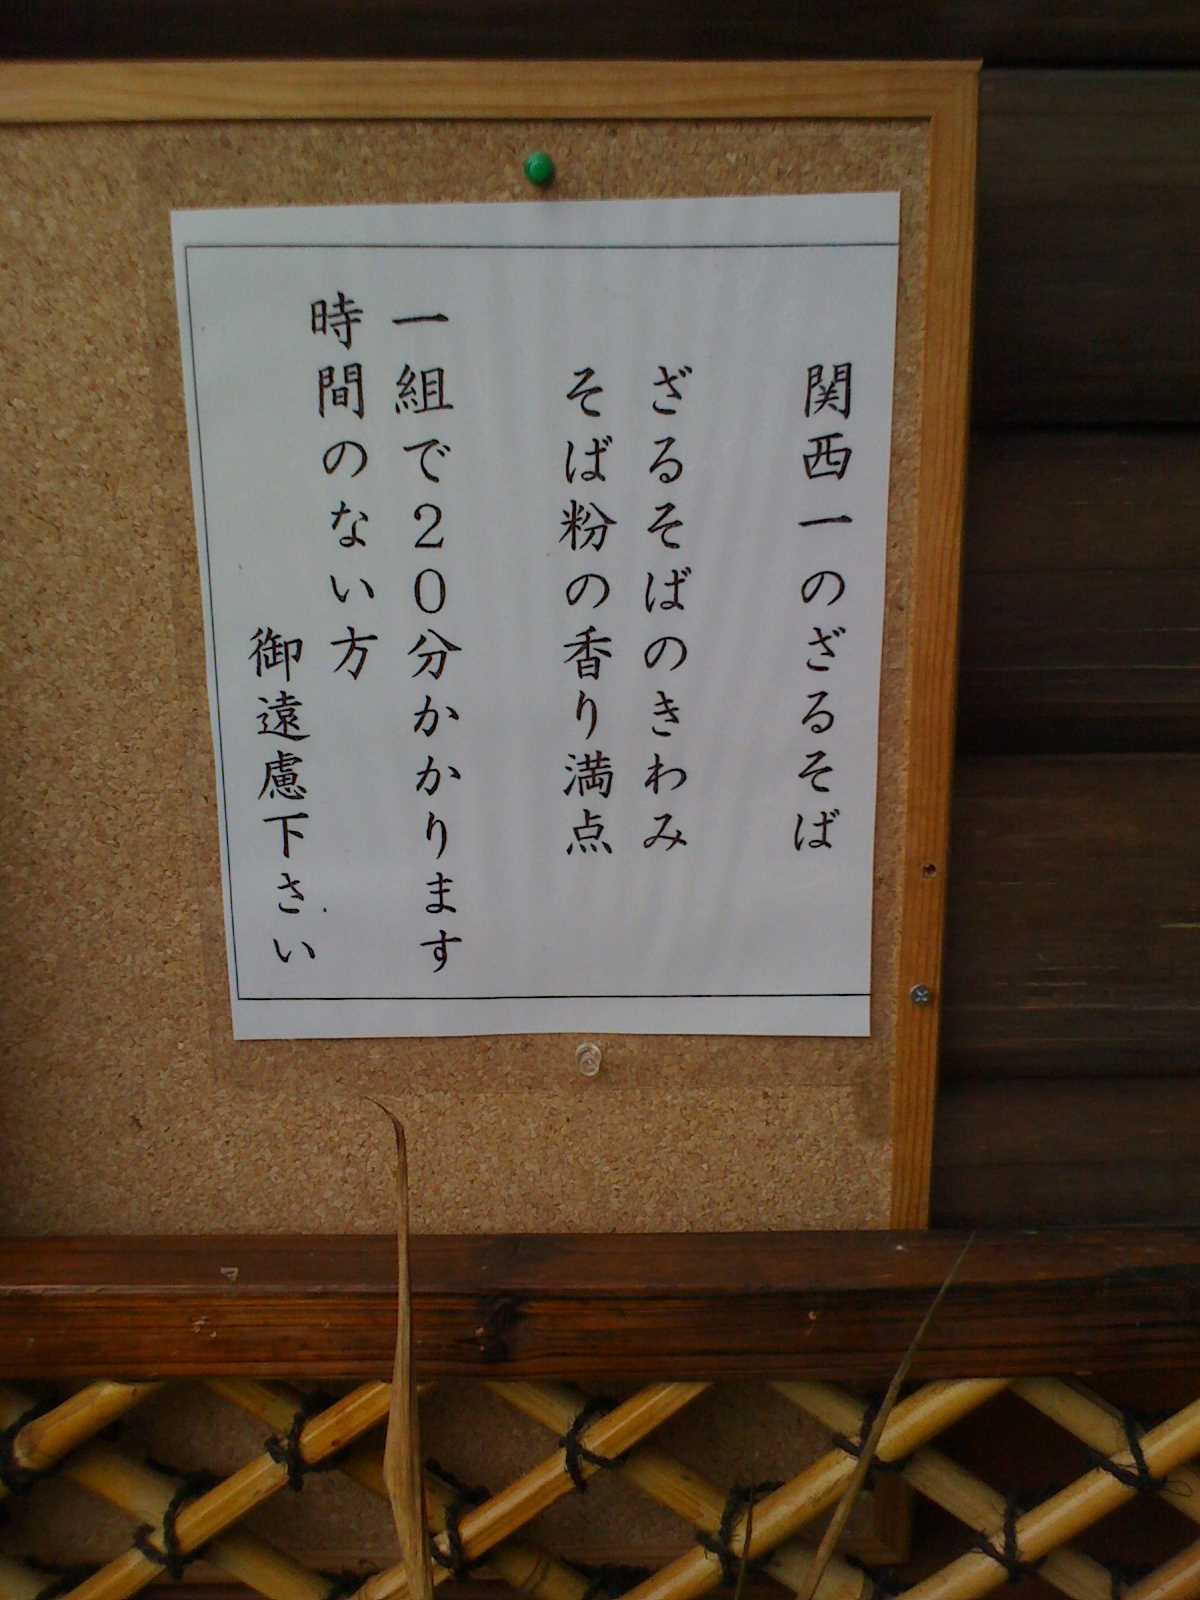 関西一のざるそば
ざるそばのきわみ
そば粉の香り満点
一組で２０分かかります
時間のない方
御遠慮下さい